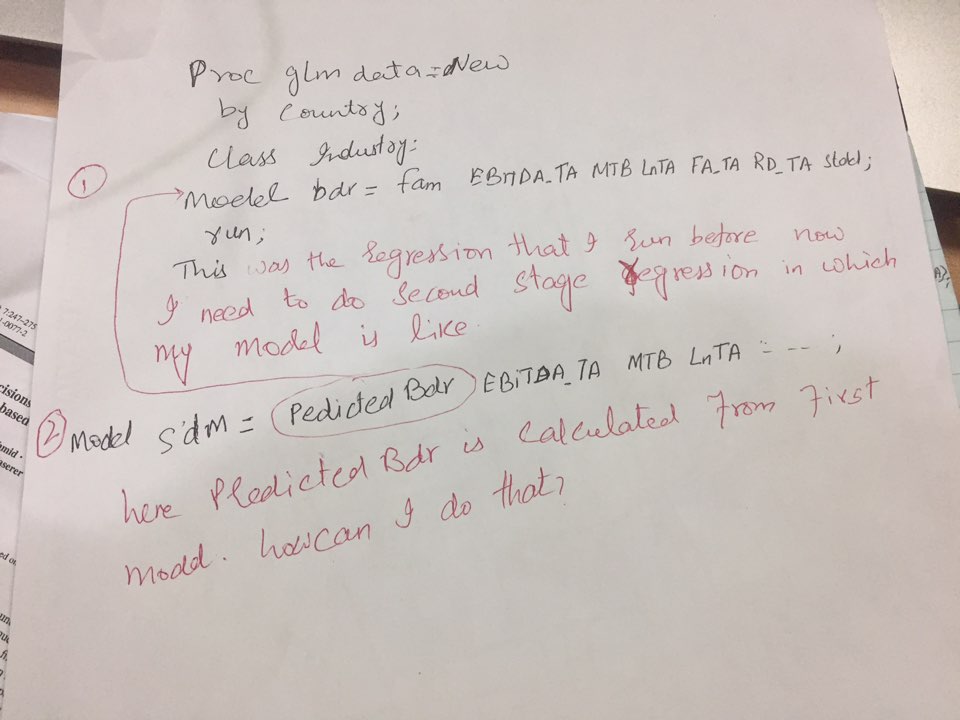 Proc glm data=New
by Country;
Class Industry:
① Moedel bdr = fam EBITDA_TA MTB LnTA FA_TA RD_TA stdel;
run;
This was the regression that I run before now
I need to do second stage regression in which
my model is like.
② Model sdM = Pedicted Bdr EBITDA_TA MTB LnTA = -- ;
here Predicted Bdr is calculated from first
modd. how can I do that?
7:247-275
-0077-2
cisions
based
mid.
aserer